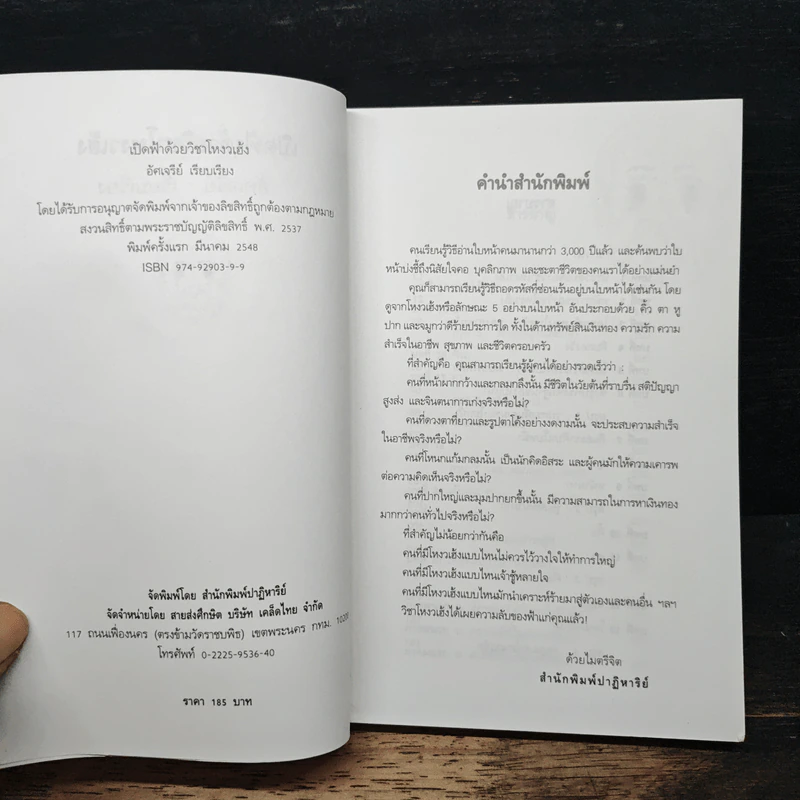 เปิดฟ้าด้วยวิชาโหงวเฮ้ง
อัศเจรีย์ เรียบเรียง
โดยได้รับการอนุญาตจัดพิมพ์จากเจ้าของลิขสิทธิ์ถูกต้องตามกฎหมาย
สงวนสิทธิ์ตามพระราชบัญญัติลิขสิทธิ์ พ.ศ. 2537
พิมพ์ครั้งแรก มีนาคม 2548
ISBN 974-92903-9-9
จัดพิมพ์โดย สำนักพิมพ์ปาฏิหาริย์
จัดจำหน่ายโดย สายส่งศึกษิต บริษัท เคล็ดไทย จำกัด
117 ถนนเฟื่องนคร (ตรงข้ามวัดราชบพิธ) เขตพระนคร กทม. 10200
โทรศัพท์ 0-2225-9536-40
ราคา 185 บาท
คำนำสำนักพิมพ์
คนเรียนรู้วิธีอ่านใบหน้าคนมานานกว่า 3,000 ปีแล้ว และค้นพบว่าใบ
หน้าบ่งชี้ถึงนิสัยใจคอ บุคลิกภาพ และชะตาชีวิตของคนเราได้อย่างแม่นยำ
คุณก็สามารถเรียนรู้วิธีถอดรหัสที่ซ่อนเร้นอยู่บนใบหน้าได้เช่นกัน โดย
ดูจากโหงวเฮ้งหรือลักษณะ 5 อย่างบนใบหน้า อันประกอบด้วย คิ้ว ตา หู
ปาก และจมูกว่าดีร้ายประการใด ทั้งในด้านทรัพย์สินเงินทอง ความรัก ความ
สำเร็จในอาชีพ สุขภาพ และชีวิตครอบครัว
ที่สำคัญคือ คุณสามารถเรียนรู้ผู้คนได้อย่างรวดเร็วว่า :
คนที่หน้าผากกว้างและกลมกลึงนั้น มีชีวิตในวัยต้นที่ราบรื่น สติปัญญา
สูงส่ง และจินตนาการเก่งจริงหรือไม่?
คนที่ดวงตาที่ยาวและรูปตาโค้งอย่างงดงามนั้น จะประสบความสำเร็จ
ในอาชีพจริงหรือไม่?
คนที่โหนกแก้มกลมนั้น เป็นนักคิดอิสระ และผู้คนมักให้ความเคารพ
ต่อความคิดเห็นจริงหรือไม่?
คนที่ปากใหญ่และมุมปากยกขึ้นนั้น มีความสามารถในการหาเงินทอง
มากกว่าคนทั่วไปจริงหรือไม่?
ที่สำคัญไม่น้อยกว่ากันคือ
คนที่มีโหงวเฮ้งแบบไหนไม่ควรไว้วางใจให้ทำการใหญ่
คนที่มีโหงวเฮ้งแบบไหนเจ้าชู้หลายใจ
คนที่มีโหงวเฮ้งแบบไหนมักนำเคราะห์ร้ายมาสู่ตัวเองและคนอื่น ฯลฯ
วิชาโหงวเฮ้งได้เผยความลับของฟ้าแก่คุณแล้ว!
ด้วยไมตรีจิต
สำนักพิมพ์ปาฏิหาริย์